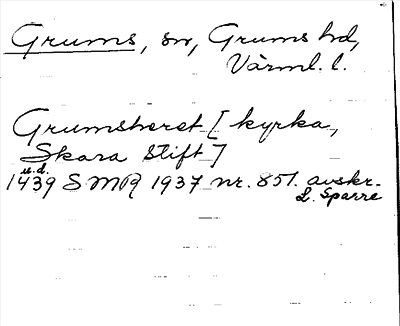 Grums, sn, Grums hd,
Värml. l.
Grumsheret [ kyrka,
Skara Stift ]
u.d.
1439 SMR 1937 nr. 851. avskr.
L. Sparre